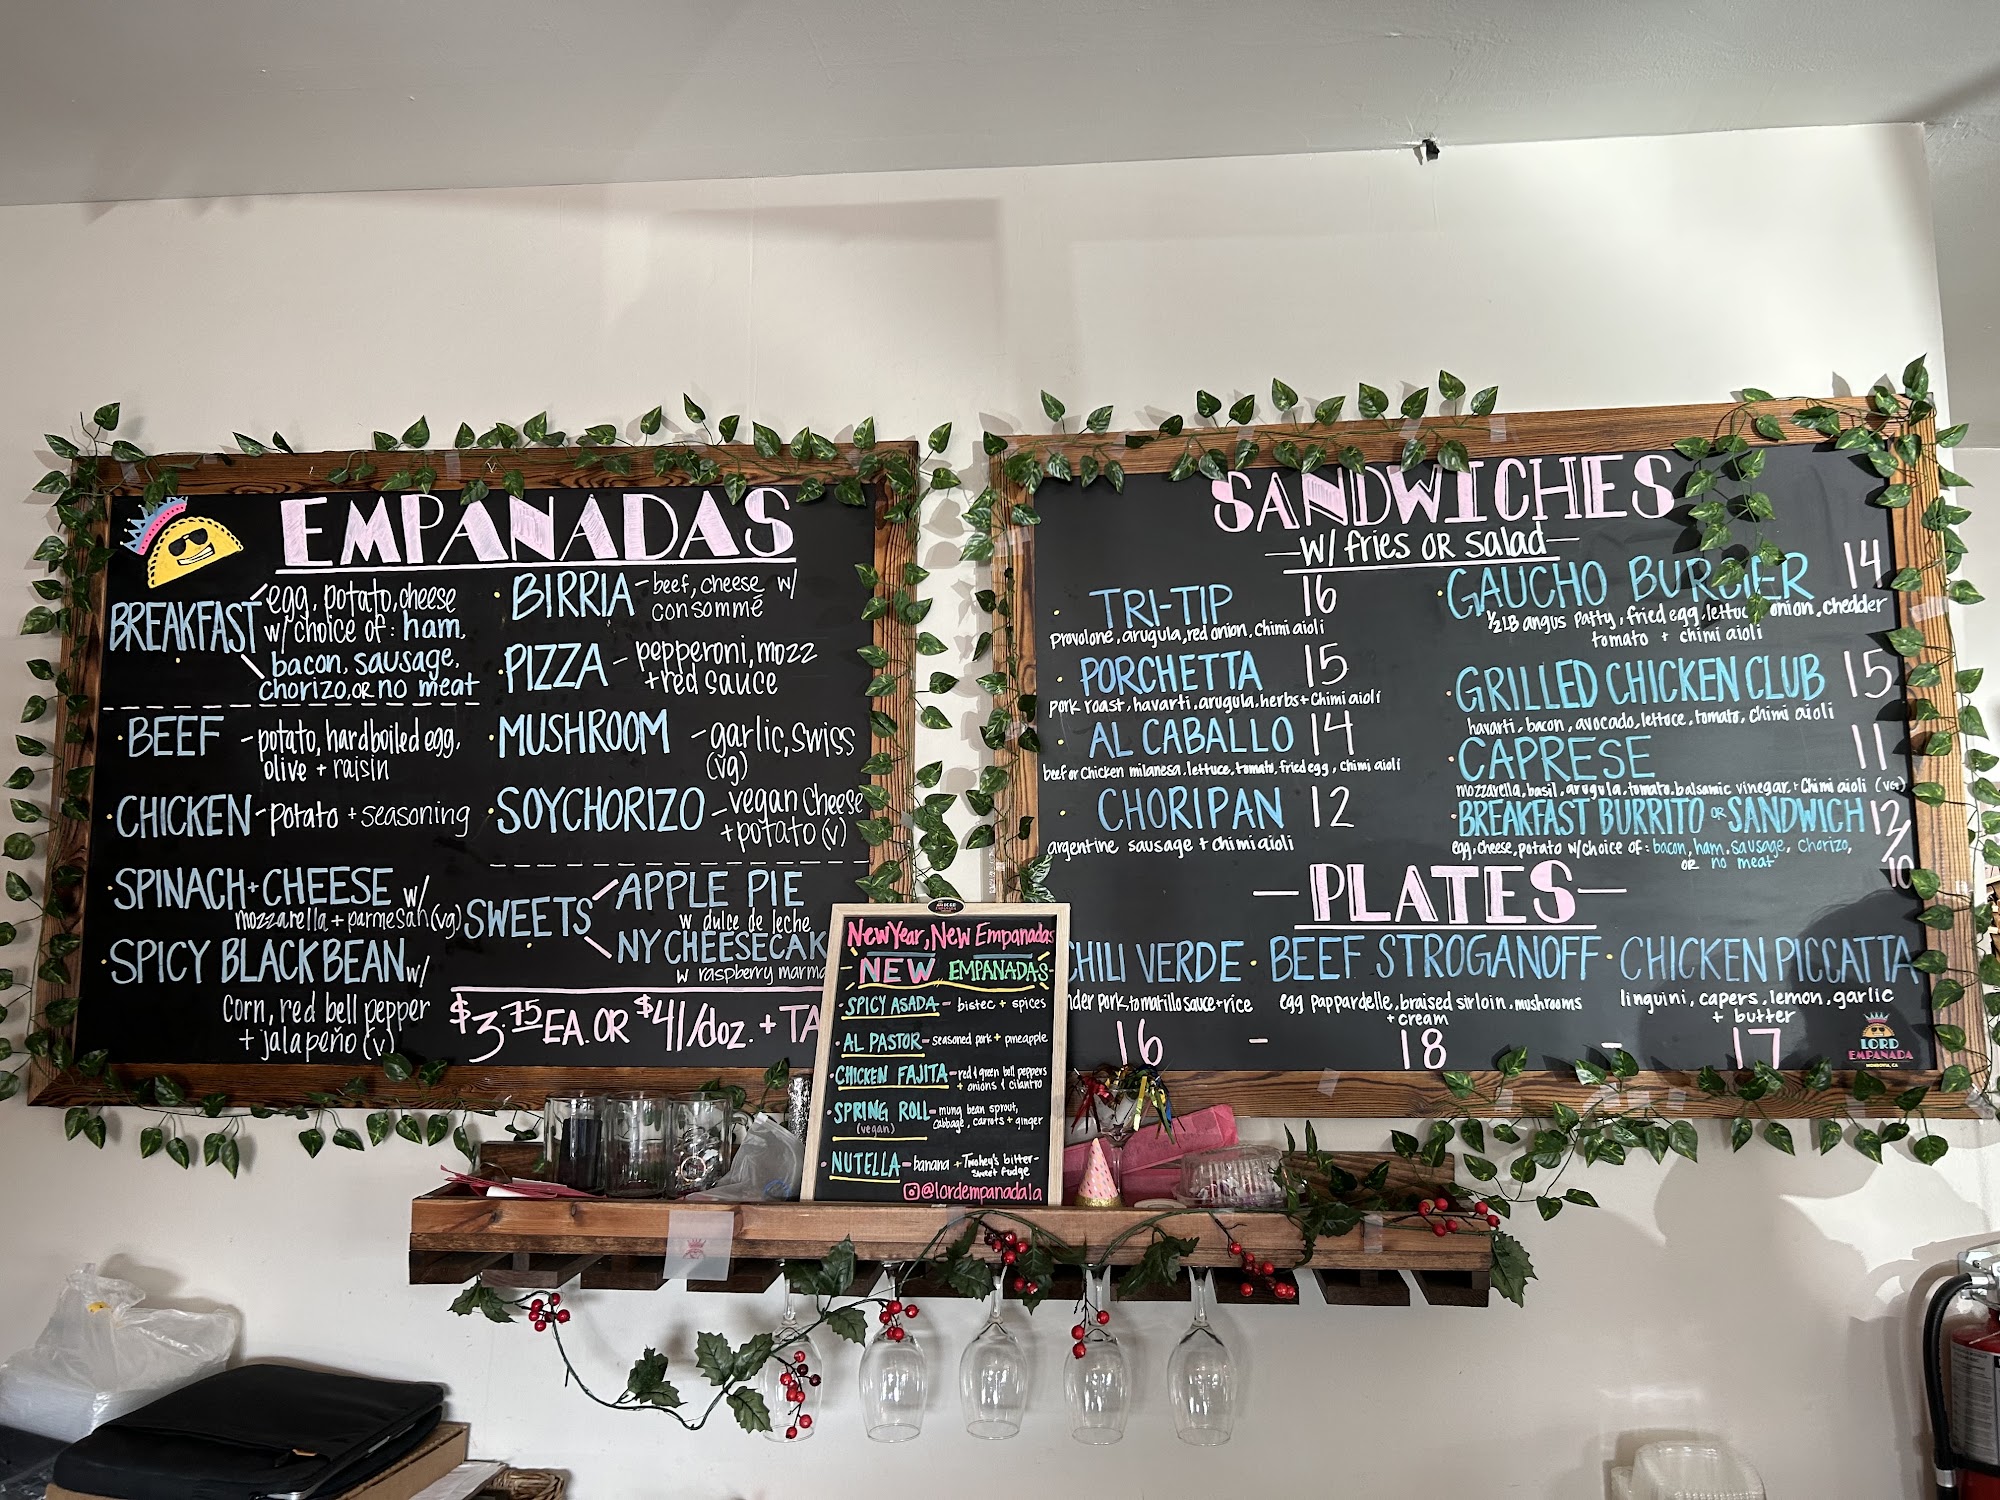 EMPANADAS
BREAKFAST egg, potato, cheese
w/ choice of: ham,
bacon, sausage,
chorizo, or no meat
BEEF - potato, hardboiled egg,
olive + raisin
CHICKEN - potato + seasoning
SPINACH + CHEESE w/
mozzarella + parmesan (vg)
SPICY BLACK BEAN w/
corn, red bell pepper
+ jalapeño (v)
BIRRIA - beef, cheese w/
consommé
PIZZA - pepperoni, mozz
+ red sauce
MUSHROOM - garlic, swiss
(vg)
SOYCHORIZO - vegan cheese
+ potato (v)
SWEETS
APPLE PIE
w dulce de leche
NY CHEESECAK
w raspberry marma
$3.75 EA. OR $41/doz. + TA
New Year, New Empanadas
NEW EMPANADAS
SPICY ASADA - bistec + spices
AL PASTOR - seasoned pork + pineapple
CHICKEN FAJITA - red & green bell peppers
+ onions & cilantro
SPRING ROLL - mung bean sprout,
(vegan) cabbage, carrots + ginger
NUTELLA - banana + Twohey's bitter-
sweet fudge
@lordempanadala
SANDWICHES
w/ fries OR salad
TRI-TIP 16
provolone, arugula, red onion, chimi aioli
PORCHETTA 15
pork roast, havarti, arugula, herbs + chimi aioli
AL CABALLO 14
beef or chicken milanesa, lettuce, tomato, fried egg, chimi aioli
CHORIPAN 12
argentine sausage + chimi aioli
GAUCHO BURGER 14
1/2 LB angus patty, fried egg, lettuc onion, chedder
tomato + chimi aioli
GRILLED CHICKEN CLUB 15
havarti, bacon, avocado, lettuce, tomato, chimi aioli
CAPRESE 11
mozzarella, basil, arugula, tomato, balsamic vinegar, + chimi aioli (veg)
BREAKFAST BURRITO OR SANDWICH 12/10
egg, cheese, potato w/ choice of: bacon, ham, sausage, chorizo,
OR no meat
PLATES
CHILI VERDE
nder pork, tomatillo sauce + rice
16
BEEF STROGANOFF
egg pappardelle, braised sirloin, mushrooms
+ cream
18
CHICKEN PICCATTA
linguini, capers, lemon, garlic
+ butter
17
LORD
EMPANADA
MONROVIA, CA